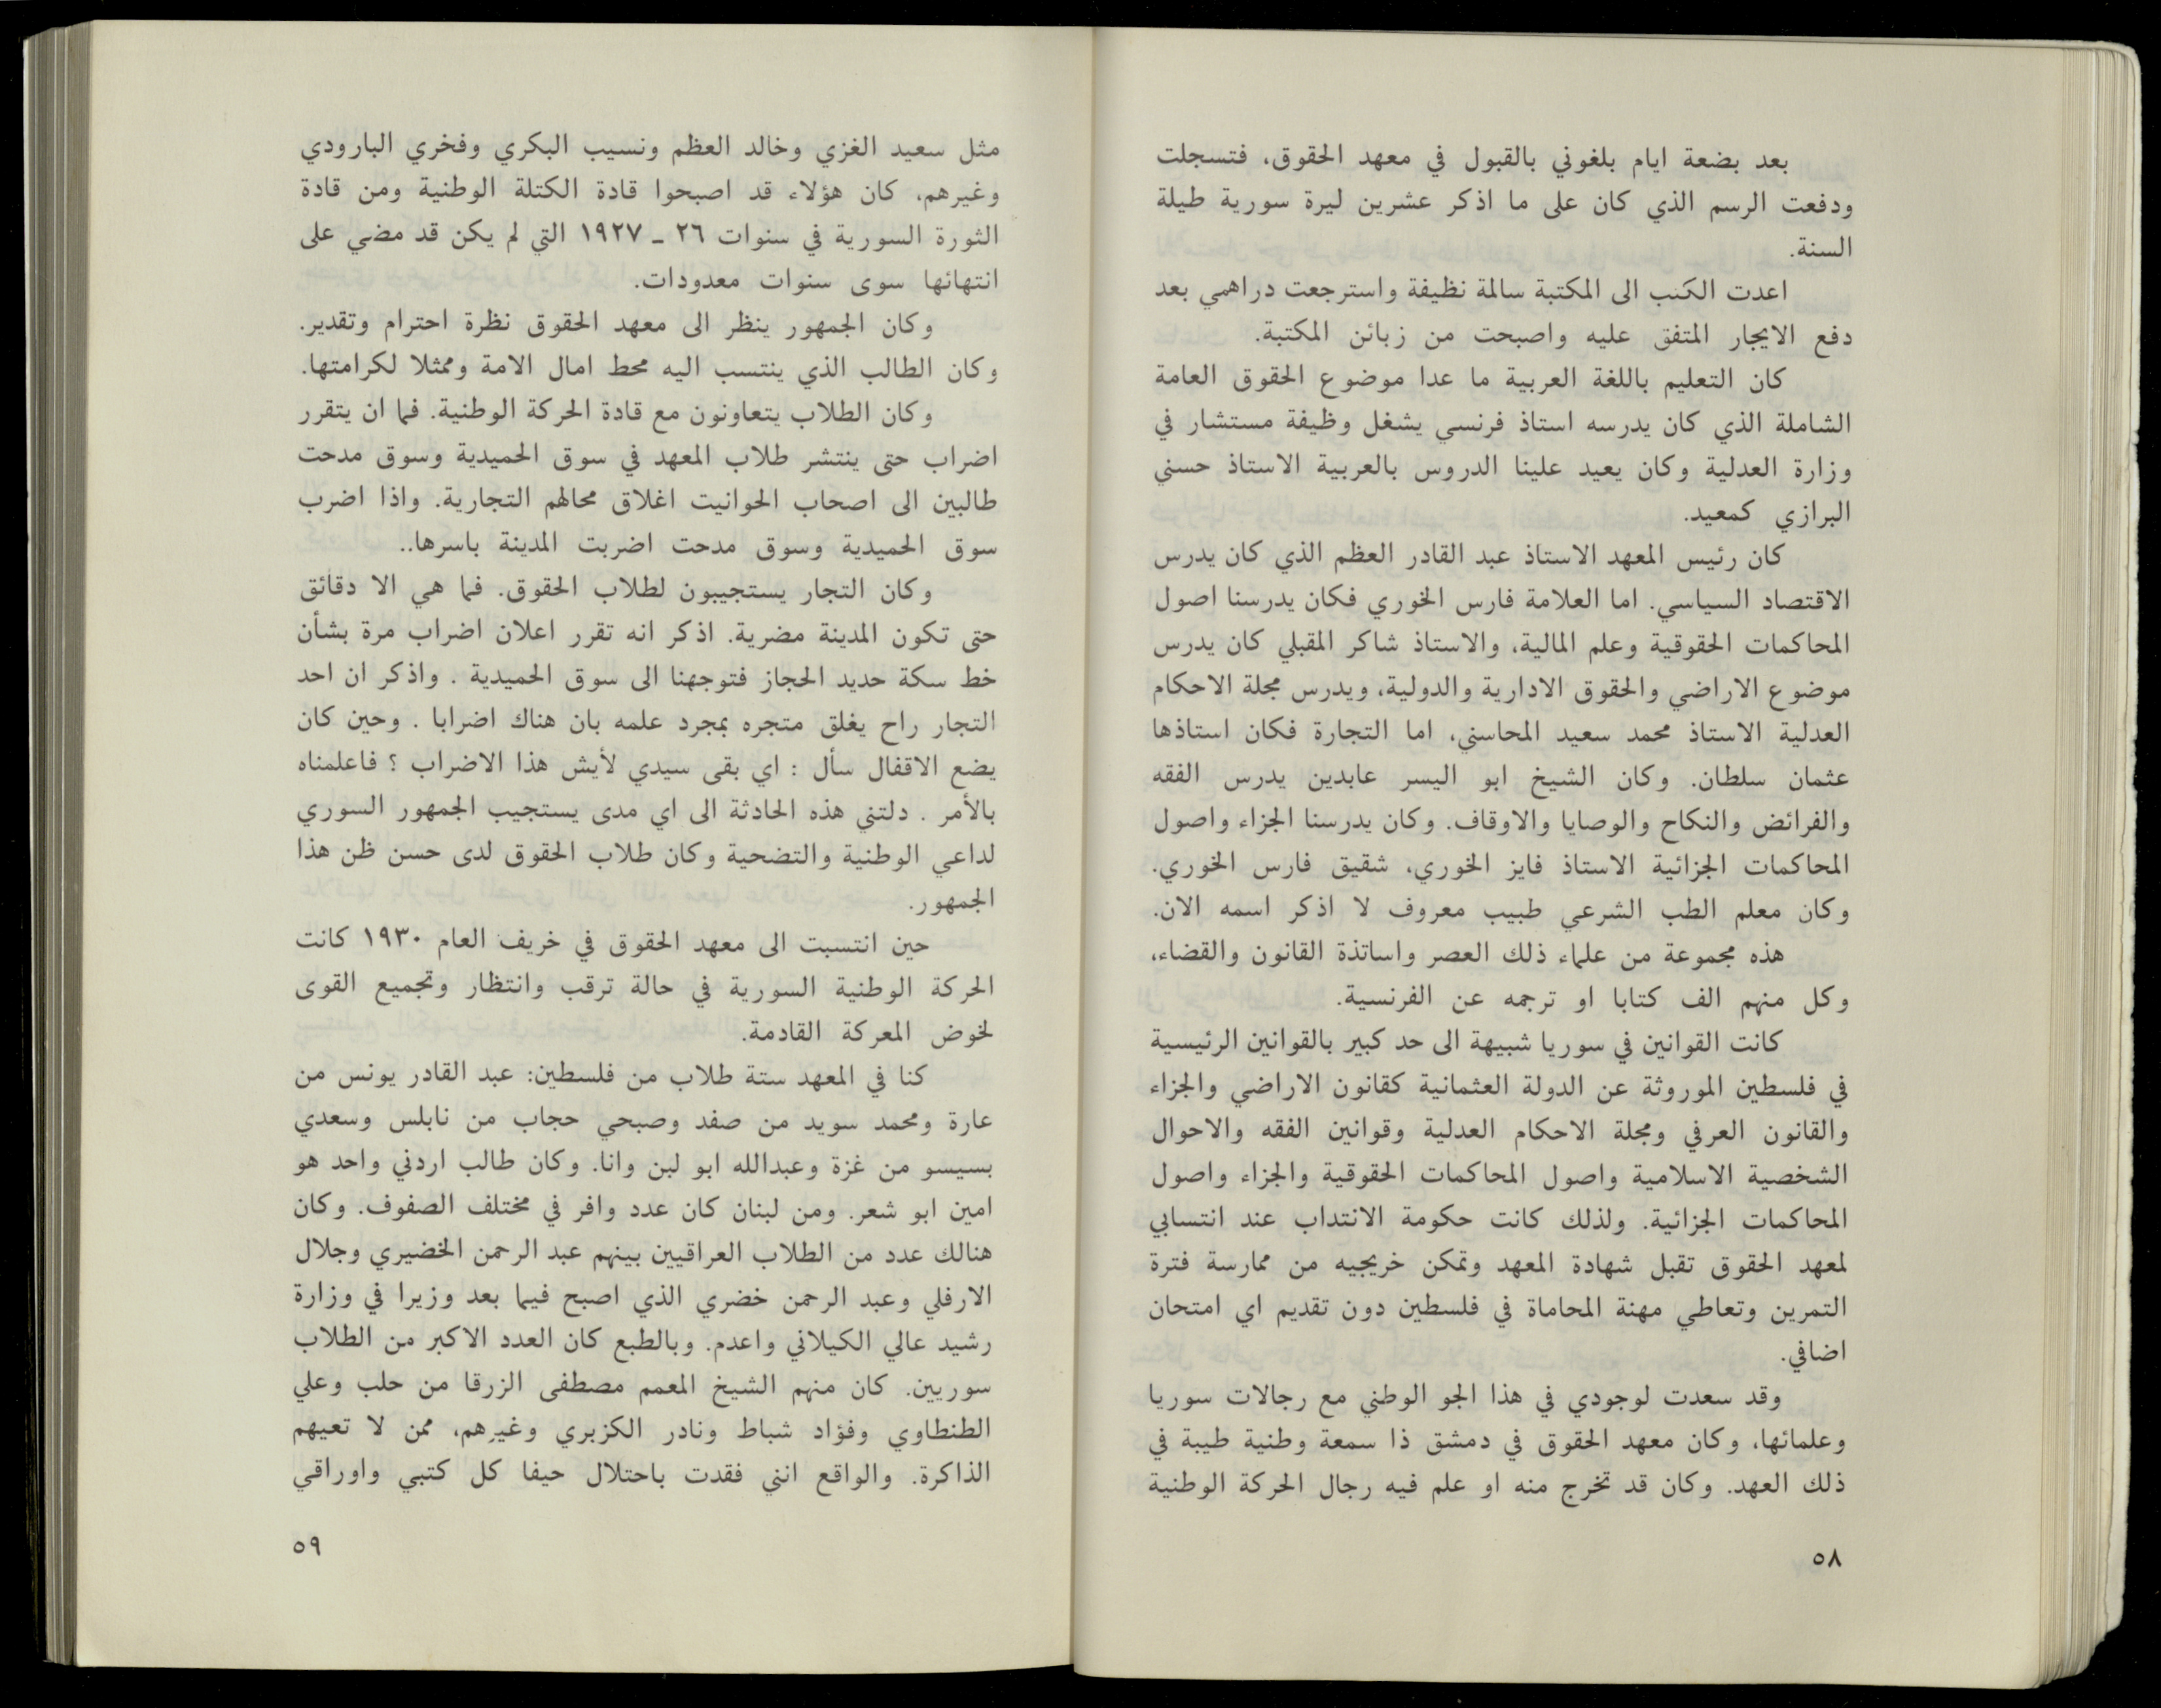 بعد بضعة ايام بلغوني بالقبول في معهد الحقوق، فتسجلت
ودفعت الرسم الذي كان على ما اذكر عشرين ليرة سورية طيلة
السنة.
اعدت الكتب الى المكتبة سالمة نظيفة واسترجعت دراهمي بعد
دفع الايجار المتفق عليه واصبحت من زبائن المكتبة.
كان التعليم باللغة العربية ما عدا موضوع الحقوق العامة
الشاملة الذي كان يدرسه استاذ فرنسي يشغل وظيفة مستشار في
وزارة العدلية وكان يعيد علينا الدروس بالعربية الاستاذ حسني
البرازي كمعيد.
كان رئيس المعهد الاستاذ عبد القادر العظم الذي كان يدرس
الاقتصاد السياسي. اما العلامة فارس الخوري فكان يدرسنا اصول
المحاكمات الحقوقية وعلم المالية، والاستاذ شاكر المقبلي كان يدرس
موضوع الاراضي والحقوق الادارية والدولية، ويدرس مجلة الاحكام
العدلية الاستاذ محمد سعيد المحاسني، اما التجارة فكان استاذها
عثمان سلطان. وكان الشيخ ابو اليسر عابدين يدرس الفقه
والفرائض والنكاح والوصايا والاوقاف. وكان يدرسنا الجزاء واصول
المحاكمات الجزائية الاستاذ فايز الخوري، شقيق فارس الخوري.
وكان معلم الطب الشرعي طبيب معروف لا اذكر اسمه الان.
هذه مجموعة من علماء ذلك العصر واساتذة القانون والقضاء،
وكل منهم الف كتابا او ترجمه عن الفرنسية.
كانت القوانين في سوريا شبيهة الى حد كبير بالقوانين الرئيسية
في فلسطين الموروثة عن الدولة العثمانية كقانون الاراضي والجزاء
والقانون العرفي ومجلة الاحكام العدلية وقوانين الفقه والاحوال
الشخصية الاسلامية واصول المحاكمات الحقوقية والجزاء واصول
المحاكمات الجزائية. ولذلك كانت حكومة الانتداب عند انتسابي
لمعهد الحقوق تقبل شهادة المعهد وتمكن خريجيه من ممارسة فترة
التمرين وتعاطي مهنة المحاماة في فلسطين دون تقديم اي امتحان
اضافي.
وقد سعدت لوجودي في هذا الجو الوطني مع رجالات سوريا
وعلمائها، وكان معهد الحقوق في دمشق ذا سمعة وطنية طيبة في
ذلك العهد. وكان قد تخرج منه او علم فيه رجال الحركة الوطنية
٥٨
مثل سعيد الغزي وخالد العظم ونسيب البكري وفخري البارودي
وغيرهم، كان هؤلاء قد اصبحوا قادة الكتلة الوطنية ومن قادة
الثورة السورية في سنوات ٢٦ ـ ١٩٢٧ التي لم يكن قد مضي على
انتهائها سوى سنوات معدودات.
وكان الجمهور ينظر الى معهد الحقوق نظرة احترام وتقدير.
وكان الطالب الذي ينتسب اليه محط امال الامة وممثلا لكرامتها.
وكان الطلاب يتعاونون مع قادة الحركة الوطنية. فما ان يتقرر
اضراب حتى ينتشر طلاب المعهد في سوق الحميدية وسوق مدحت
طالبين الى اصحاب الحوانيت اغلاق محالهم التجارية. واذا اضرب
سوق الحميدية وسوق مدحت اضربت المدينة باسرها..
وكان التجار يستجيبون لطلاب الحقوق. فما هي الا دقائق
حتى تكون المدينة مضربة. اذكر انه تقرر اعلان اضراب مرة بشأن
خط سكة حديد الحجاز فتوجهنا الى سوق الحميدية . واذكر ان احد
التجار راح يغلق متجره بمجرد علمه بان هناك اضرابا . وحين كان
يضع الاقفال سأل : اي بقى سيدي لأيش هذا الاضراب ؟ فاعلمناه
بالأمر . دلتني هذه الحادثة الى اي مدى يستجيب الجمهور السوري
لداعي الوطنية والتضحية وكان طلاب الحقوق لدى حسن ظن هذا
الجمهور.
حين انتسبت الى معهد الحقوق في خريف العام ١٩٣٠ كانت
الحركة الوطنية السورية في حالة ترقب وانتظار وتجميع القوى
لخوض المعركة القادمة.
كنا في المعهد ستة طلاب من فلسطين: عبد القادر يونس من
عارة ومحمد سويد من صفد وصبحي حجاب من نابلس وسعدي
بسيسو من غزة وعبدالله ابو لبن وانا. وكان طالب اردني واحد هو
امين ابو شعر. ومن لبنان كان عدد وافر في مختلف الصفوف. وكان
هنالك عدد من الطلاب العراقيين بينهم عبد الرحمن الخضيري وجلال
الارفلي وعبد الرحمن خضري الذي اصبح فيما بعد وزيرا في وزارة
رشيد عالي الكيلاني واعدم. وبالطبع كان العدد الاكبر من الطلاب
سوريين. كان منهم الشيخ المعمم مصطفى الزرقا من حلب وعلي
الطنطاوي وفؤاد شباط ونادر الكزبري وغيرهم، ممن لا تعيهم
الذاكرة. والواقع انني فقدت باحتلال حيفا كل كتبي واوراقي
٥٩